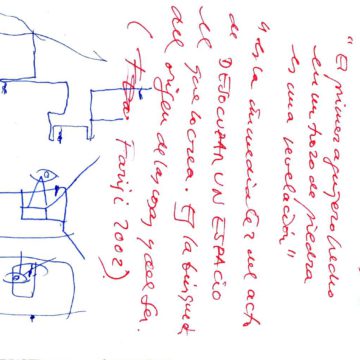 "El primer agujero hecho
en un trozo de piedra
es una revelación"
"es la dimensión del acto
de DESOCUPAR UN ESPACIO
el que lo crea. Es la búsqueda
del origen de las cosas y del ser.
( Fariji 2002)